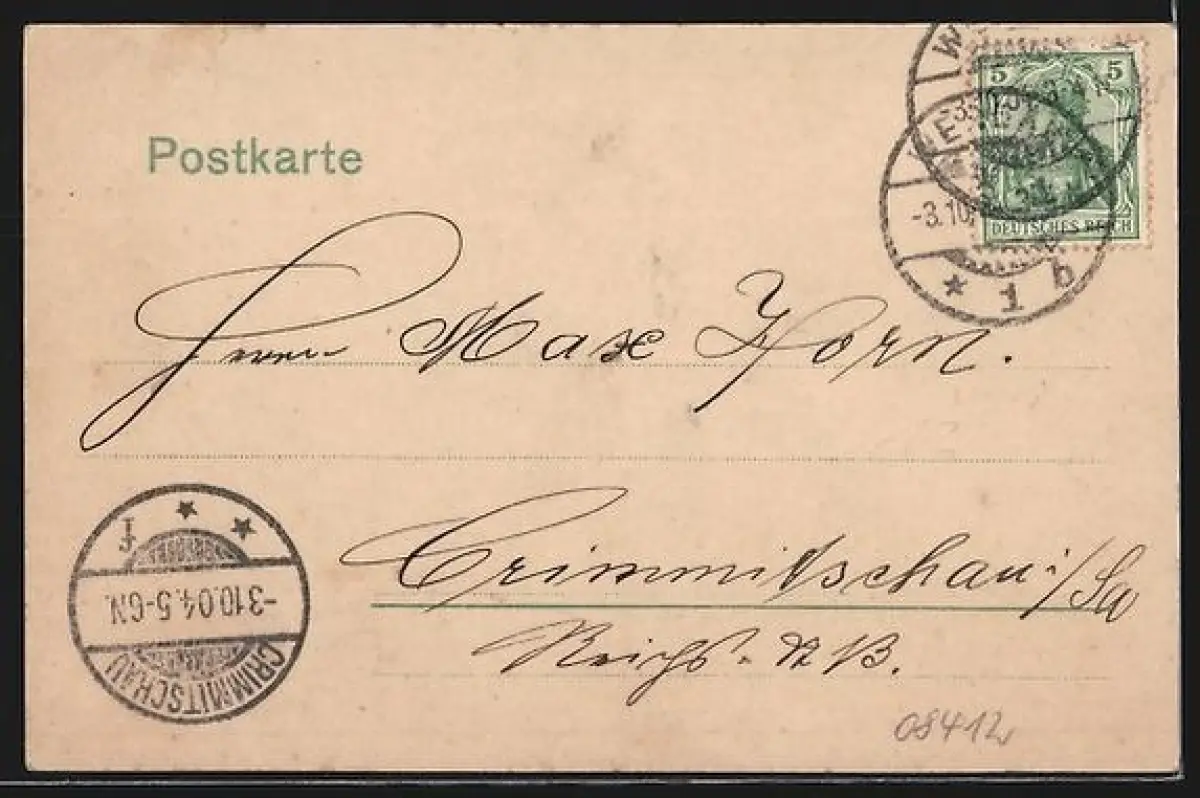 Postkarte
5 5
DEUTSCHES REICH
-3.10.
* 1 b
Herrn Max Horn.
Crimmitschau i/Sa
Reichs-
-3.10.04. 5-6N.
CRIMMITSCHAU
08412